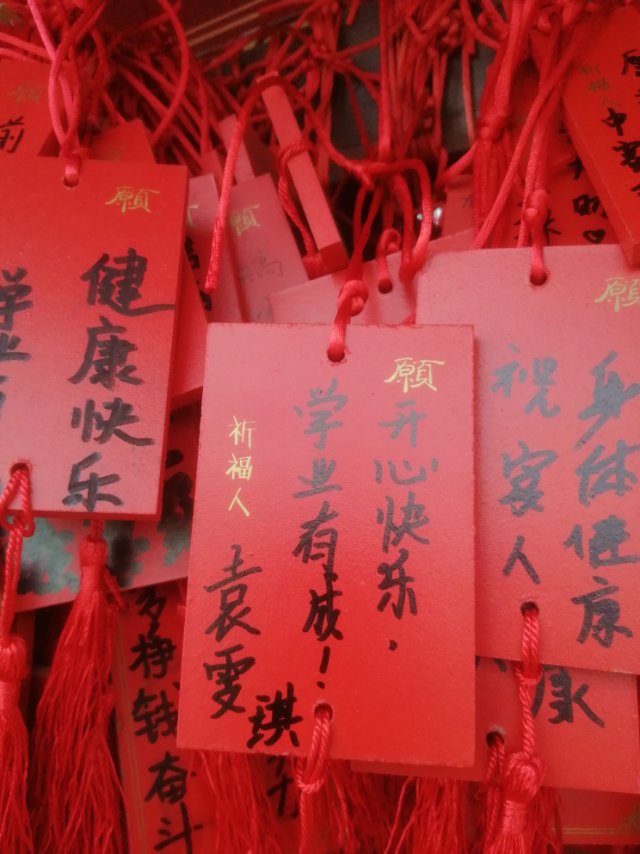 願
开心快乐,
学业有成!
祈福人
袁雯琪
願
健康快乐
学业
願
身体健康
祝家人
多挣钱
奋斗
願
願
前
祈福人
康